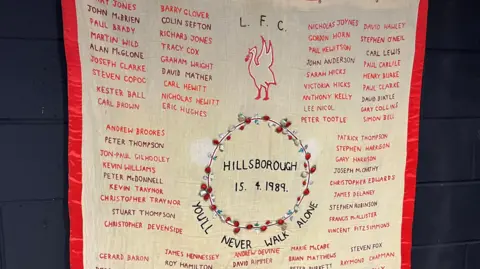 JONES
BARRY GLOVER
JOHN McBRIEN
COLIN SEFTON
PAUL BRADY
RICHARD JONES
MARTIN WILD
TRACY COX
ALAN McGLONE
GRAHAM WRIGHT
JOSEPH CLARKE
DAVID MATHER
STEVEN COPOC
CARL HEWITT
KESTER BALL
NICHOLAS HEWITT
CARL BROWN
ERIC HUGHES
L. F. C.
NICHOLAS JOYNES
DAVID HAWLEY
GORDON HORN
STEPHEN O'NEIL
PAUL HEWITSON
CARL LEWIS
JOHN ANDERSON
PAUL CARLILE
SARAH HICKS
HENRY BURKE
VICTORIA HICKS
PAUL CLARKE
ANTHONY KELLY
DAVID BIRTLE
LEE NICOL
GARY COLLINS
PETER TOOTLE
SIMON BELL
ANDREW BROOKES
PETER THOMPSON
JON-PAUL GILHOOLEY
KEVIN WILLIAMS
PETER McDONNELL
KEVIN TRAYNOR
CHRISTOPHER TRAYNOR
STUART THOMPSON
CHRISTOPHER DEVENSIDE
HILLSBOROUGH
15. 4. 1989.
YOU'LL NEVER WALK ALONE
PATRICK THOMPSON
STEPHEN HARRISON
GARY HARRISON
JOSEPH McCARTHY
CHRISTOPHER EDWARDS
JAMES DELANEY
STEPHEN ROBINSON
FRANCIS McALLISTER
VINCENT FITZSIMMONS
GERARD BARON
JAMES HENNESSEY
ANDREW DEVINE
MARIE McCABE
STEVEN FOX
ROY HAMILTON
DAVID RIMMER
BRIAN MATTHEWS
RAYMOND CHAPMAN
PETER BURKETT